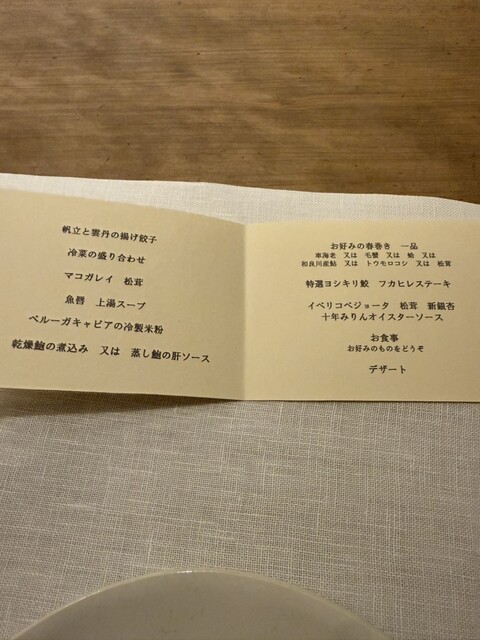 帆立と雲丹の揚げ餃子
冷菜の盛り合わせ
マコガレイ 松茸
魚唇 上湯スープ
ベルーガキャビアの冷製米粉
乾燥鮑の煮込み 又は 蒸し鮑の肝ソース
お好みの春巻き 一品
車海老 又は 毛蟹 又は 蛤 又は
和良川産鮎 又は トウモロコシ 又は 松茸
特選ヨシキリ鮫 フカヒレステーキ
イベリコベジョータ 松茸 新銀杏
十年みりんオイスターソース
お食事
お好みのものをどうぞ
デザート